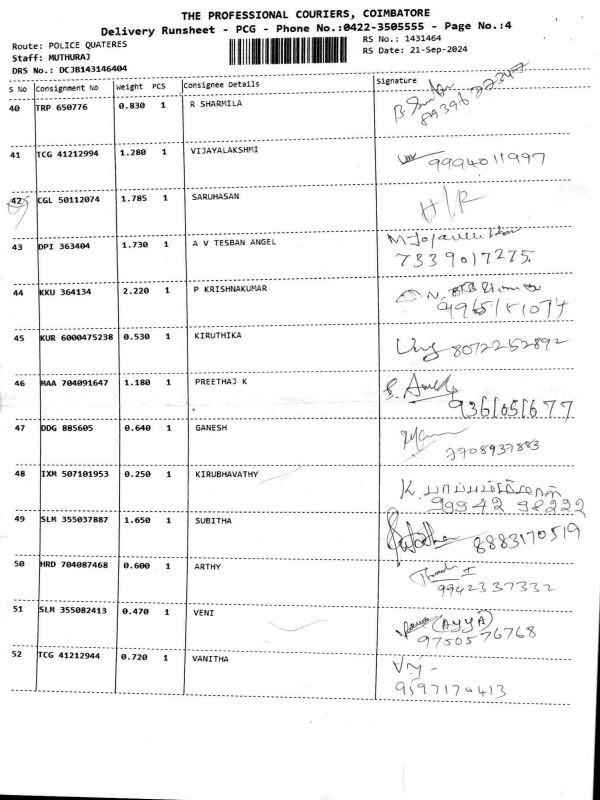 THE PROFESSIONAL COURIERS, COIMBATORE
Delivery Runsheet - PCG - Phone No.:0422-3505555 - Page No.:4
Route: POLICE QUATERES
RS No.: 1431464
Staff: MUTHURAJ
RS Date: 21-Sep-2024
DRS No.: DCJB143146404
S No Consignment No Weight PCS Consignee Details Signature
40 TRP 650776 0.830 1 R SHARMILA
41 TCG 41212994 1.280 1 VIJAYALAKSHMI 9994011997
42 CGL 50112074 1.785 1 SARUHASAN H/R
43 DPI 363404 1.730 1 A V TESBAN ANGEL
7339017275
44 KKU 364134 2.220 1 P KRISHNAKUMAR
45 KUR 6000475238 0.530 1 KIRUTHIKA 8072252892
46 MAA 704091647 1.180 1 PREETHAJ K
9361051677
47 DDG 885605 0.640 1 GANESH
48 IXM 507101953 0.250 1 KIRUBHAVATHY K.
99942 98222
49 SLM 355037887 1.650 1 SUBITHA 8883170519
50 HRD 704087468 0.600 1 ARTHY
9942337332
51 SLM 355082413 0.470 1 VENI (AYYA)
9750576768
52 TCG 41212944 0.720 1 VANITHA
9597170413